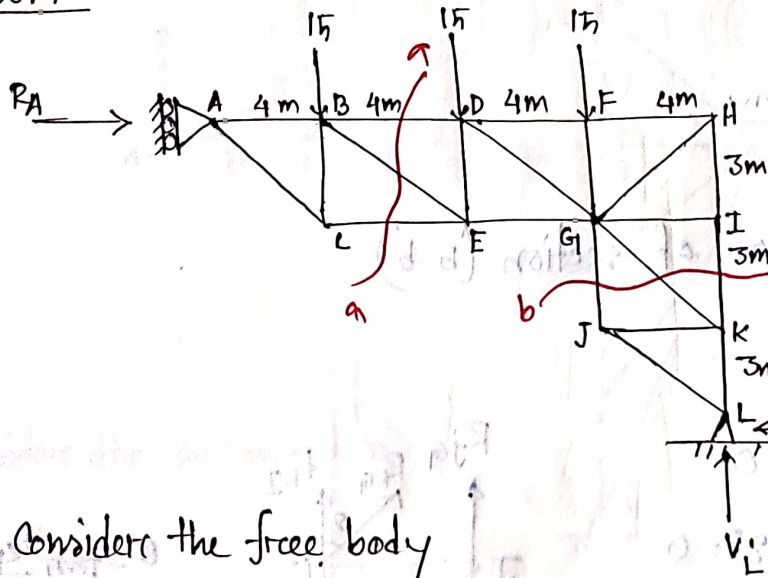 15 15 15
RA A 4m B 4m D 4m F 4m H
3m
C E G I
3m
a b
J K
L
Consider the free body
VL